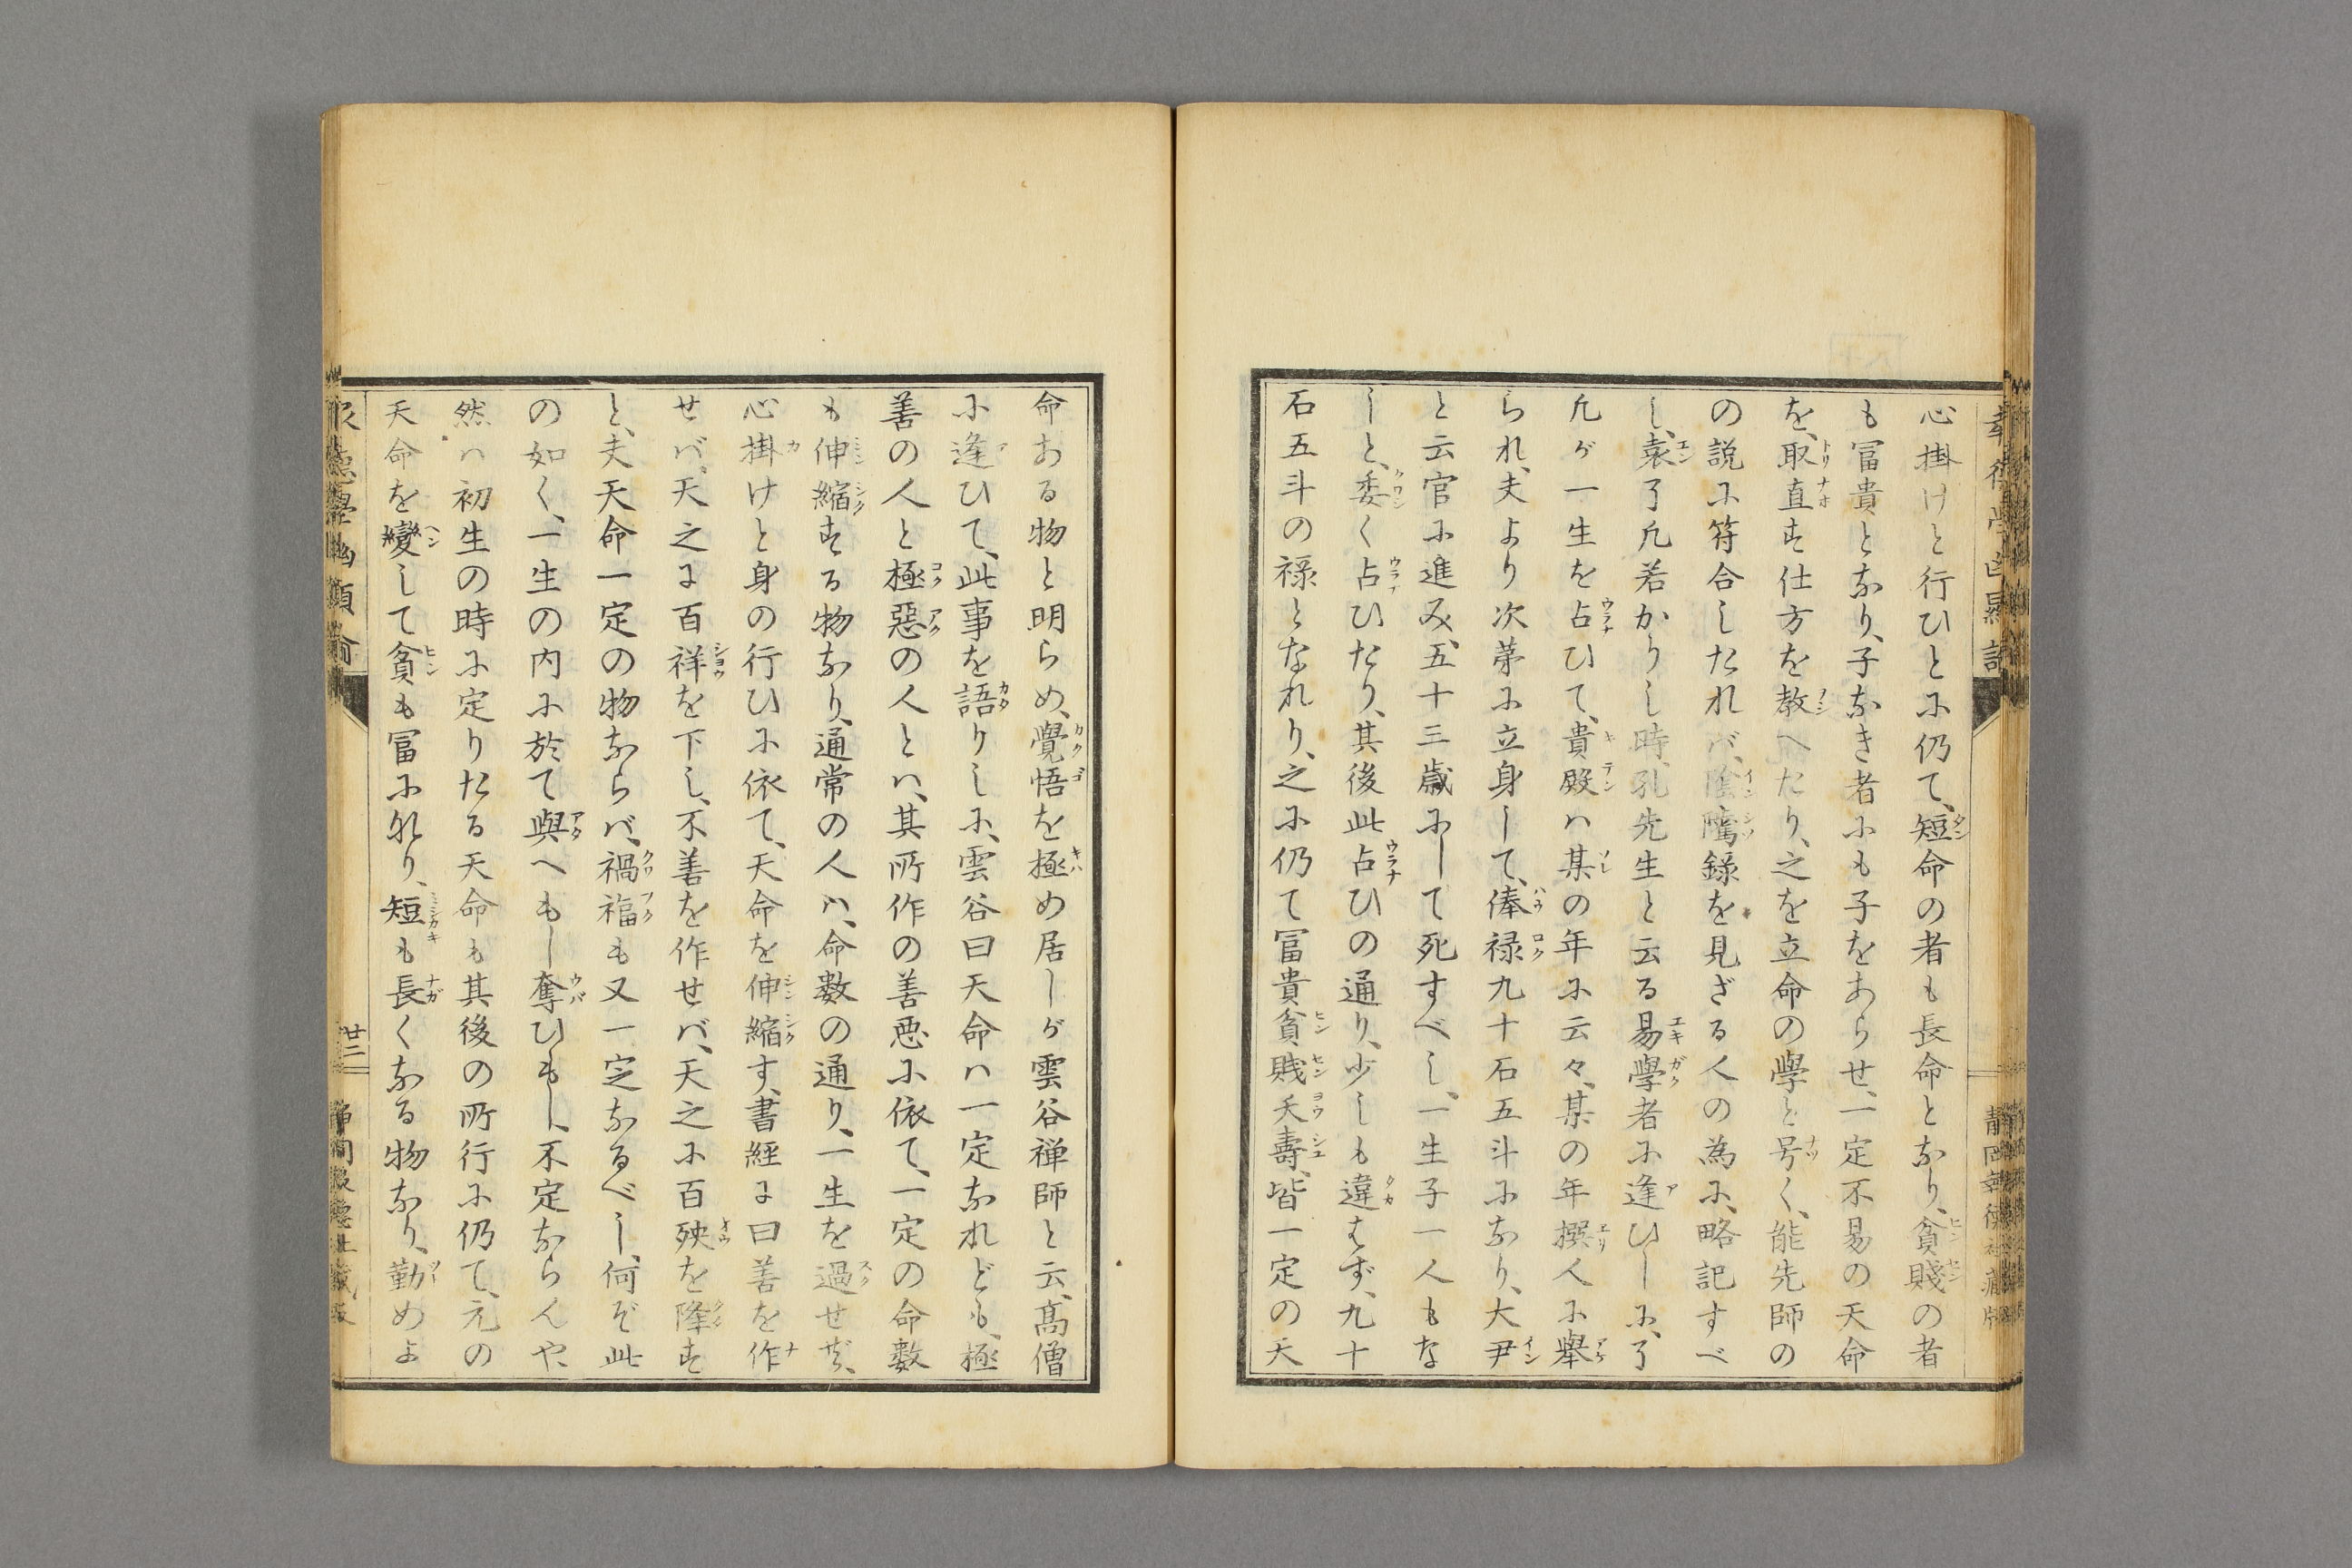 心掛けと行ひとに仍て、短命の者も長命となり、貧賤の者
も冨貴となり、子なき者にも子をあらせ、一定不易の天命
を、取直す仕方を教へたり、之を立命の學と号く、能先師の
の説に符合したれバ、陰隲錄を見ざる人の為に、略記すべ
し、袁了凡若かりし時、孔先生と云る易學者に逢ひしに、了
凡ガ一生を占ひて、貴殿ハ某の年に云々、某の年撰人に擧
られ、夫より次第に立身して、俸禄九十石五斗になり、大尹
と云官に進み、五十三歳にして死すべし、一生子一人もな
しと、委く占ひたり、其後此占ひの通り、少しも違はず、九十
石五斗の禄となれり、之に仍て冨貴貧賎夭壽、皆一定の天
命ある物と明らめ、覺悟を極め居しガ雲谷禅師と云、髙僧
に逢ひて、此事を語りしに、雲谷曰天命ハ一定なれども、極
善の人と極惡の人とハ、其所作の善悪に依て、一定の命數
も伸縮する物なり、通常の人ハ、命數の通り、一生を過せど、
心掛けと身の行ひに依て、天命を伸縮す、書経に曰善を作
せバ、天之に百祥を下し、不善を作せバ、天之に百殃を降す
と、夫天命一定の物ならバ、禍福も又一定なるべし、何ぞ此
の如く、一生の内に於て與へもし奪ひもし、不定ならんや、
然ハ初生の時に定りたる天命も其後の所行に仍て、元の
天命を變して貧も冨になり、短も長くなる物なり、勤めよ
廿二